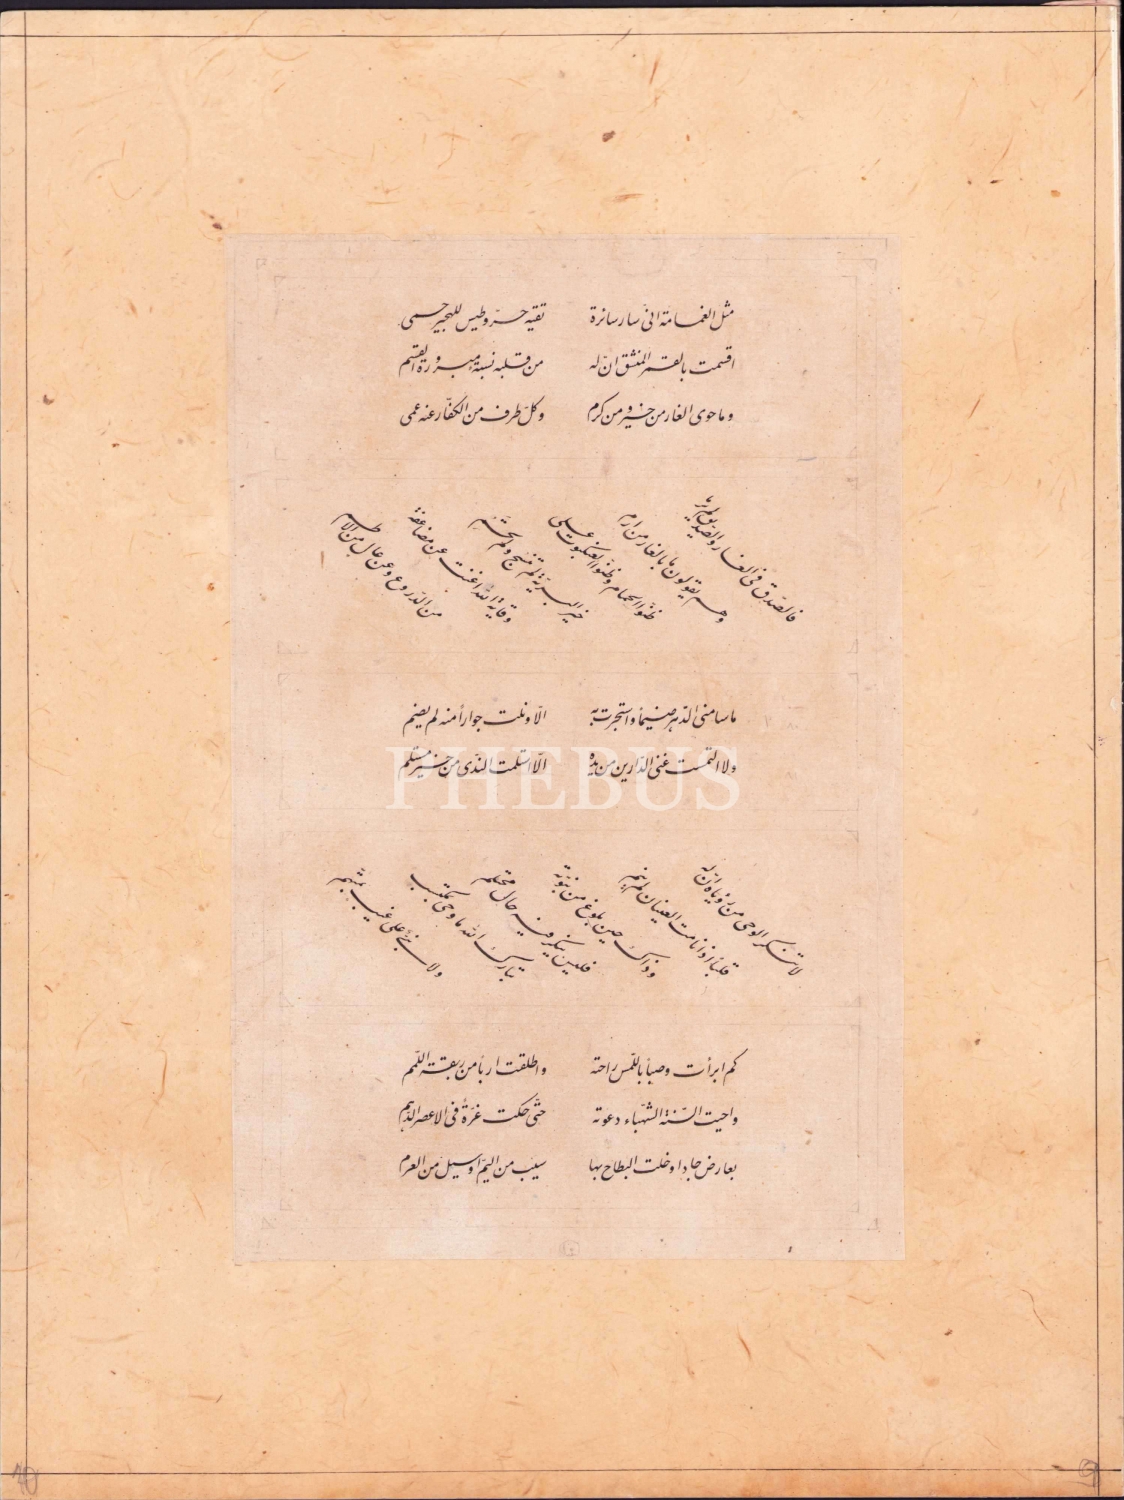 مثل الغمامة انّى سار سائرة تقيه حرّ وطيس للهجير حمى
اقسمت بالقمر المنشق انّ له من قلبه نسبة مبرورة القسم
وما حوى الغار من خير و من كرم وكلّ طرف من الكفّار عنه عمى
فالصّدق فى الغار والصّدّيق لم يرما
وهم يقولون ما بالغار من ارم
ظنّوا الحمام وظنّوا العنكبوت على
خير البريّة لم تنسج ولم تحم
وقاية الله اغنت عن مضاعفة
من الدّروع وعن عال من الاطم
ما سامنى الدّهر ضيماً واستجرت به الّا ونلت جواراً منه لم يضم
ولا التمست غنى الدّارين من يده الّا استلمت النّدى من خير مستلم
لا تنكر الوحى من رؤياه انّ له
قلباً اذا نامت العينان لم ينم
وذاك حين بلوغ من نبوّته
فليس ينكر فيه حال محتلم
تبارك الله ما وحى بمكتسب
ولا نبىّ على غيب بمتّهم
كم ابرأت وصباً باللّمس راحته واطلقت ارباً من ربقة اللّمم
واحيت السّنة الشّهباء دعوته حتّى حكت غرّة فى الاعصر الدّهم
بعارض جاد او خلت البطاح بها سيب من اليمّ او سيل من العرم
PHEBUS